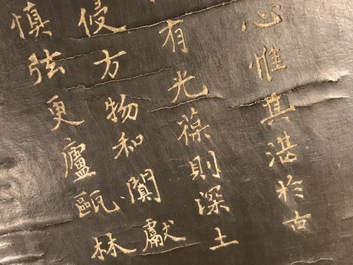 心惟其湛於古
有光葆則深土
侵方物和闐獻
慎弦更廬甌林